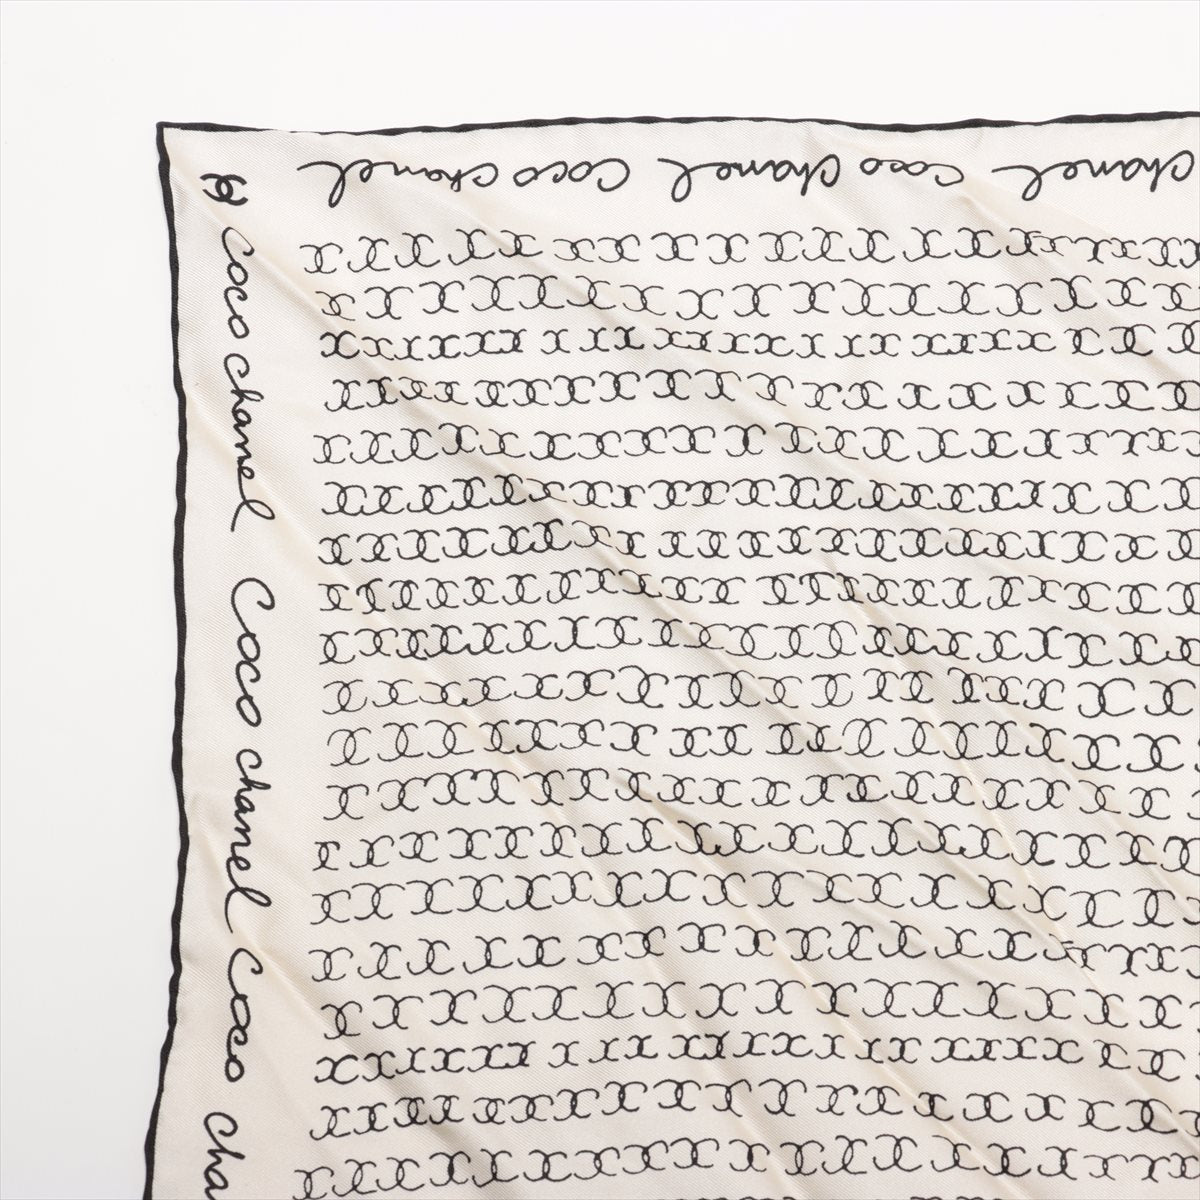 Coco Chanel Coco Chanel Coco Chanel
Coco Chanel Coco Chanel Coco Cha